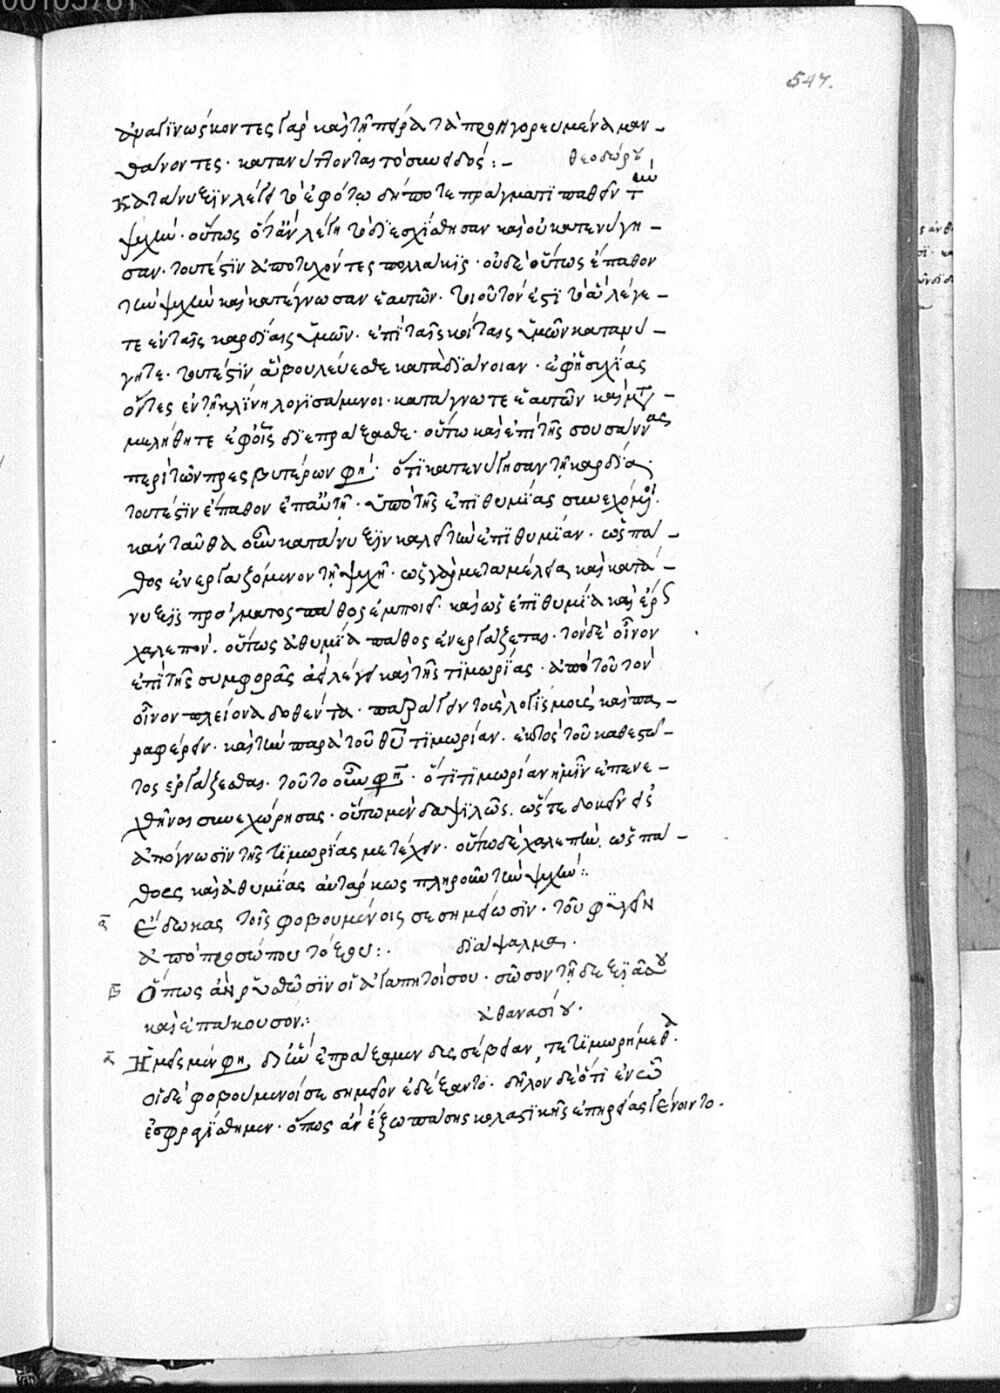 00105781
547.
ἀναγινώσκοντες γὰρ καὶ τῇ πείρᾳ τὰ προηγορευμένα μαν-
θάνοντες· κατανύττονται τὸ συνειδός:- θεοδώρου
Κατάνυξιν λέγει τὸ ἐφ' ὅτῳ δήποτε πράγματι παθεῖν τὴν
ψυχήν· οὕτως ὅταν λέγῃ τὸ διεσχίσθησαν καὶ οὐ κατενύγη-
σαν· τουτέστιν ἀποτυχόντες πολλάκις· οὐδὲ οὕτως ἔπαθον
τὴν ψυχὴν καὶ κατέγνωσαν ἑαυτῶν· τοιοῦτόν ἐστι τὸ ἃ λέγε-
τε ἐν ταῖς καρδίαις ὑμῶν· ἐπὶ ταῖς κοίταις ὑμῶν κατανύ-
γητε· τουτέστιν ἃ βουλεύεσθε κατὰ διάνοιαν· ἐφ' ἡσυχίας
ὄντες ἐν τῇ κλίνῃ λογισάμενοι· καταγνῶτε ἑαυτῶν καὶ μετα-
μελήθητε ἐφ' οἷς διεπράξασθε· οὕτω καὶ ἐπὶ τῆς σουσάννας
περὶ τῶν πρεσβυτέρων φησί· ὅτι κατενύγησαν τῇ καρδίᾳ·
τουτέστιν ἔπαθον ἐπ' αὐτῇ· ὑπὸ τῆς ἐπιθυμίας συνεχόμενοι·
κἀνταῦθα οὖν κατάνυξιν καλεῖ τὴν ἐπιθυμίαν· ὡς πά-
θος ἐνεργαζόμενον τῇ ψυχῇ· ὡς γὰρ μεταμέλεια καὶ κατά-
νυξις πράγματος πάθος ἐμποιεῖ· καὶ ὡς ἐπιθυμία καὶ ἔρως
χαλεπὸν· οὕτως ἀθυμία πάθος ἐνεργάζεται· τὸν δὲ οἶνον
ἐπὶ τῆς συμφορᾶς ἀεὶ λέγει καὶ τῆς τιμωρίας· ἀπὸ τοῦ τὸν
οἶνον πλείονα δοθέντα· παραλύειν τοῖς λογισμοῖς καὶ πα-
ραφέρειν· καὶ τὴν παρὰ τοῦ θυ τιμωρίαν· ἐκτὸς τοῦ καθεστῶ-
τος ἐργάζεσθαι· τοῦτο οὖν φησὶ· ὅτι τιμωρίαν ἡμῖν ἐπενε-
χθῆναι συνεχώρησας· οὕτω μὲν δαψιλῶς, ὥστε δοκεῖν εἰς
ἀπόγνωσιν τῆς τιμωρίας μετέχειν· οὕτω δὲ χαλεπὴν, ὡς πά-
θους καὶ ἀθυμίας αὐτάρκως πληροῦν τὴν ψυχήν:.
α Ἔδωκας τοῖς φοβουμένοις σε σημείωσιν· τοῦ φυγεῖν
ἀπὸ προσώπου τόξου:. διάψαλμα.
β Ὅπως ἂν ῥυσθῶσιν οἱ ἀγαπητοί σου· σῶσον τῇ δεξιᾷ σου
καὶ ἐπάκουσον:. ἀθανασίου·
α Ἡμεῖς μέν φησι, δι' ὧν ἐπράξαμεν δυσσέβειαν, τετιμωρήμεθα·
οἱ δὲ φοβούμενοί σε σημεῖον ἐδέξαντο· δῆλον δὲ ὅτι ἐν ᾧ
ἐσφραγίσθημεν· ὅπως ἂν ἔξω πάσης κολαστικῆς ἐπηρείας γένοιντο.